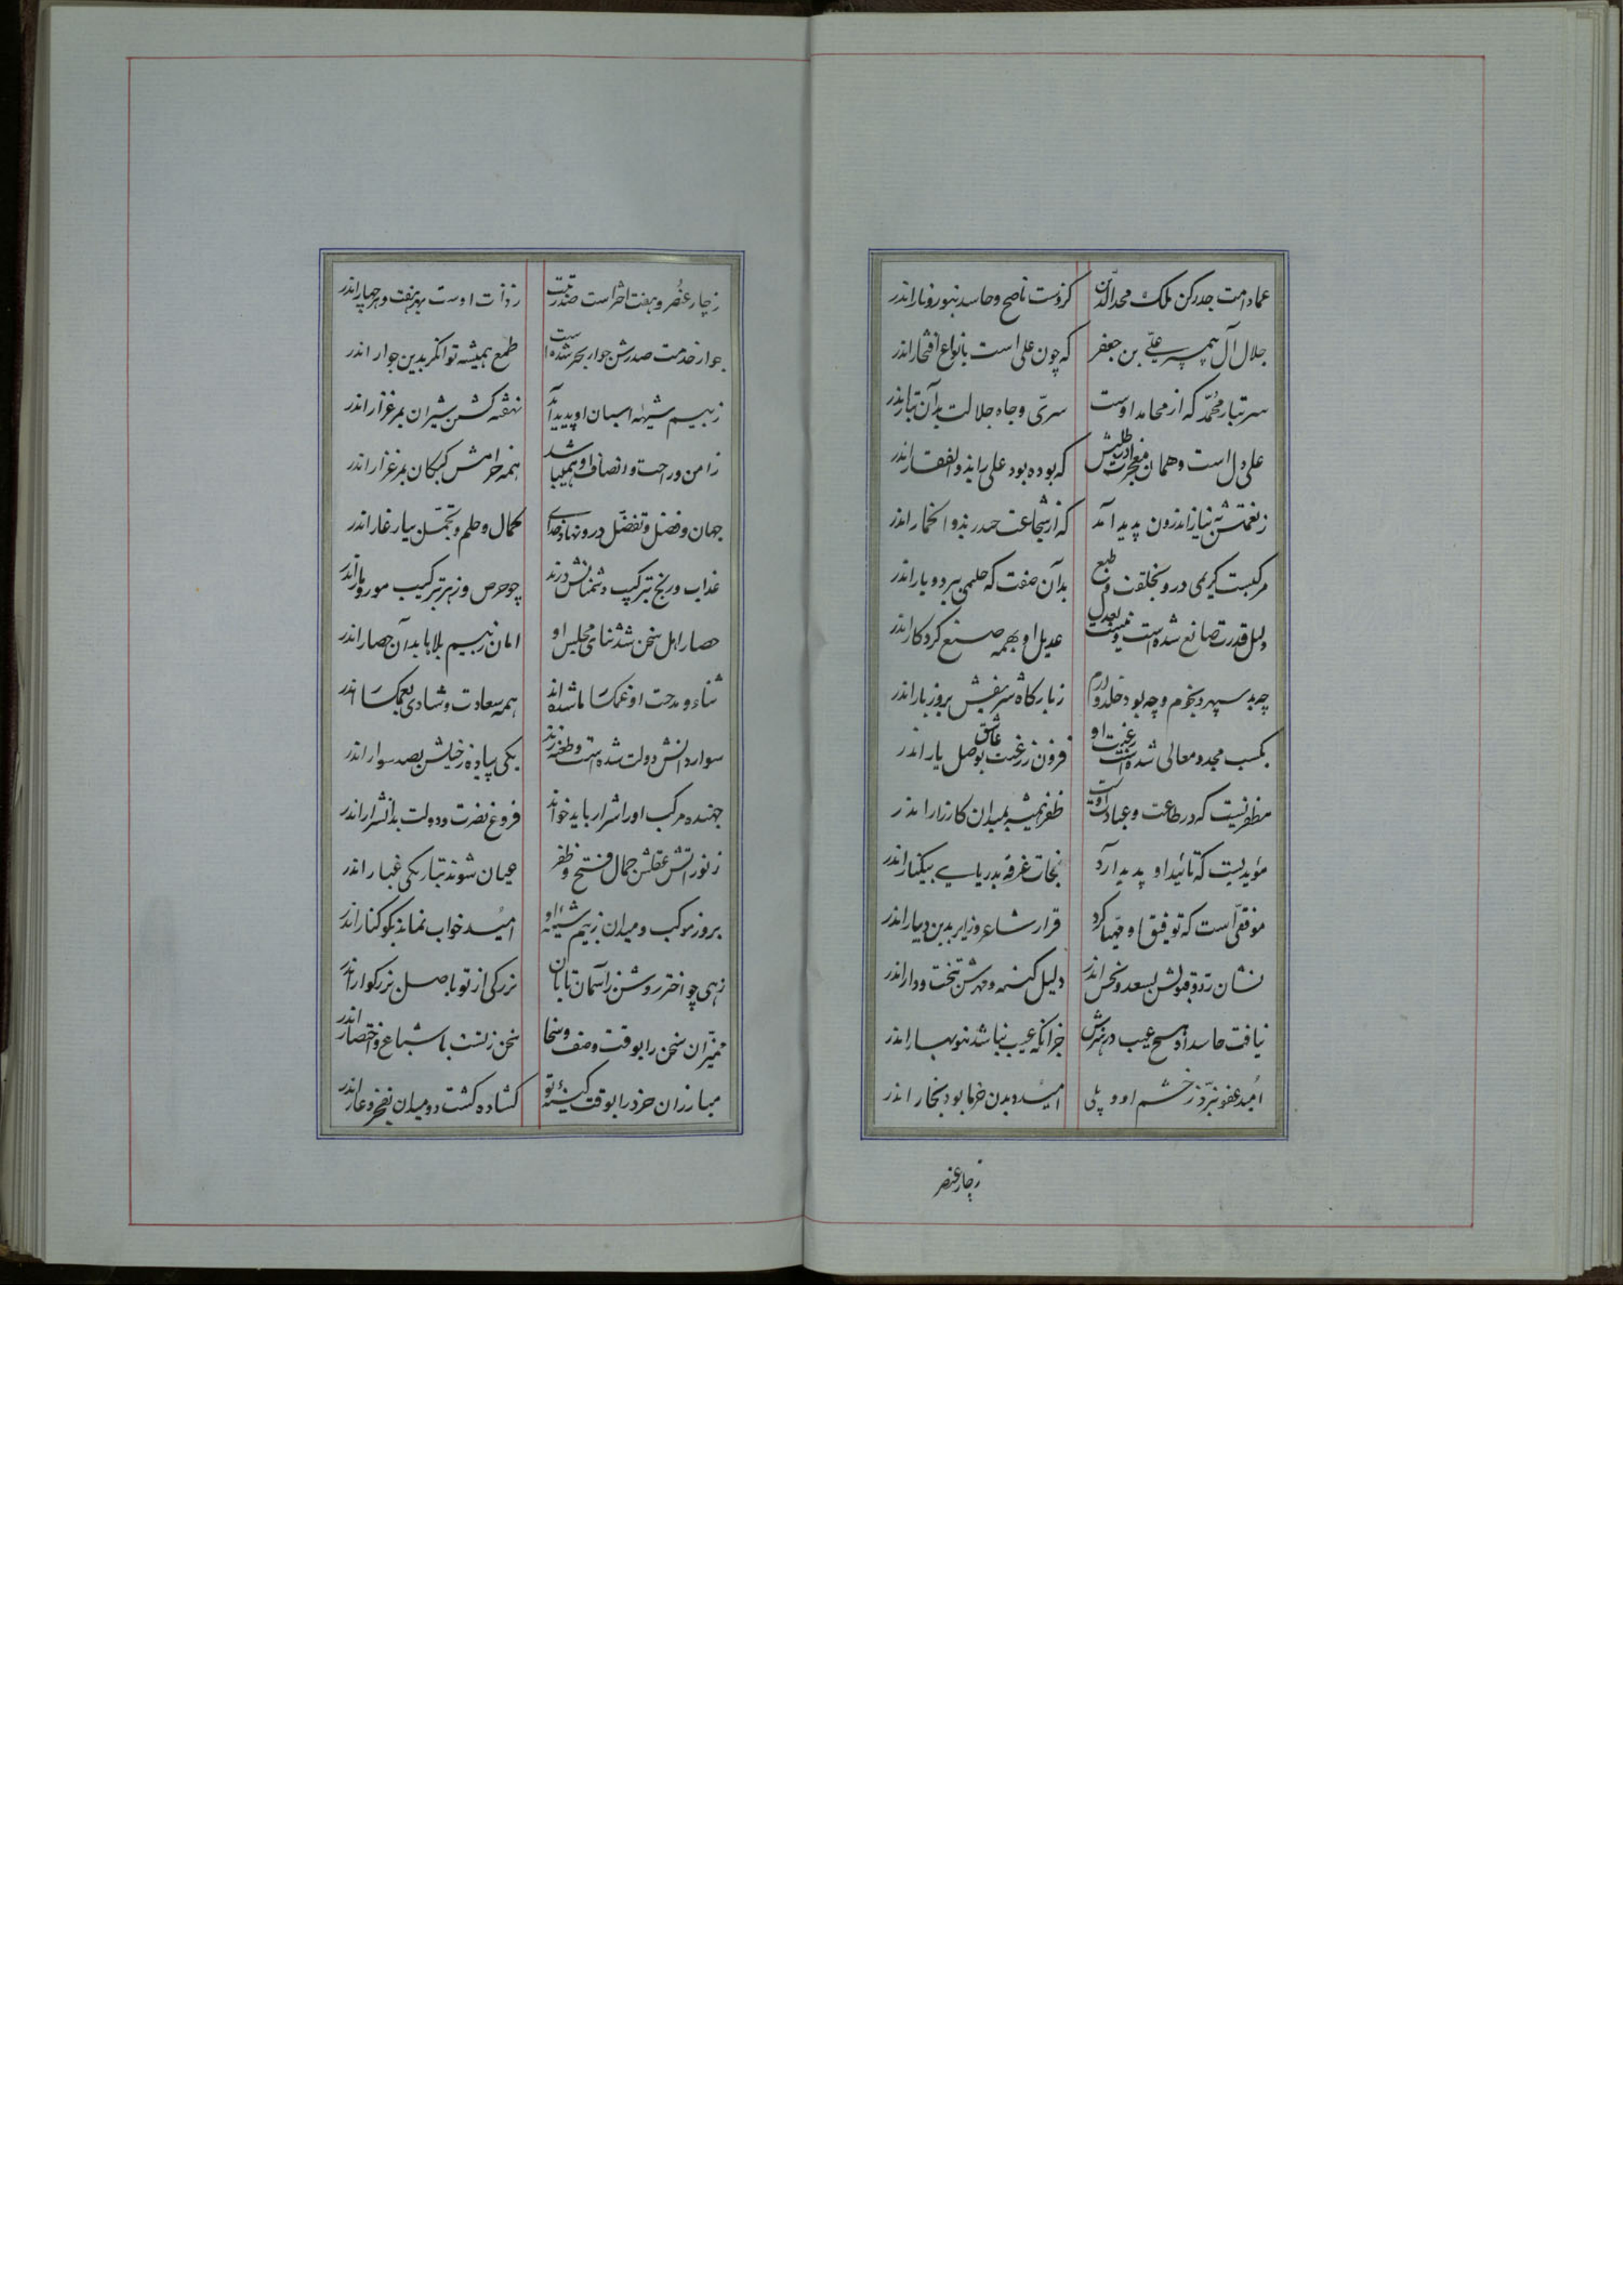 عماد امت جد رکن ملک مجد الدین کزوست ناصح و حاسد بنور و نار اندر
جلال آل پیمبر علی بن جعفر که چون علی است بانواع افتخار اندر
سر تبار محمد که از محامد اوست سری و جاه جلالت بدان تبار اندر
علی دل است و همان معجزت که بوده بود علی را بذوالفقار اندر
ز نعمتش به نیاز اندرون پدید آمد که از شجاعت حیدر بذو الخمار اندر
مرکبست کریمی درو بخلقت و طبع بدان صفت که حلیمی ببردبار اندر
دلیل قدرت صانع شده است و نیست بعدل عدیل او بهمه صنع کردکار اندر
چه بد سپهر و نجوم و چه بود خلد و ارم ز بارکاه شریفش بروز بار اندر
بکسب مجد و معالی شده است رغبت او فزون ز رغبت عاشق بوصل یار اندر
مظفریست که در طاعت و عبادت اوست ظفر همیشه بمیدان کارزار اندر
مؤیدیست که تائید او پدید آرد نجات غرقه بدریای بیکنار اندر
موفقی است که توفیق او مهیا کرد قرار شاعر و زایر بدین دیار اندر
نشان رد و قبولش بسعد و نحس اندر دلیل کینه و مهرش بتخت و دار اندر
نیافت حاسد او هیچ عیب در هنرش جز آنکه عیب نباشد بنوبهار اندر
امید عفو نبرد ز خشم او و پلی امید دیدن خرما بود بخار اندر
ز چار عنصر
ز چار عنصر و هفت اختر است صد رتبت ز ذات اوست بهر هفت و هر چهار اندر
جوار خدمت صدرش جوار بحر شده است طمع همیشه توانکر بدین جوار اندر
ز بیم شیهه اسبان او پدید آید نهفته کشتن شیران بمرغزار اندر
ز امن و راحت و انصاف او همی باشد همه خرامش کبکان بمرغزار اندر
جهان و فضل و تفضل درو نهاد خدای کمال و حلم و تجمل بیار غار اندر
عذاب و رنج بترکیب دشمنانش درند چو حرص و زهر بترکیب مور و مار اندر
حصار اهل سخن شد ثنای مجلس او امان ز بیم بلاها بدان حصار اندر
ثناء و مدحت او غمکسار ما شده‌اند همه سعادت و شادی بغمکسار اندر
سوار دانش و دولت شده است و طعنه زند یکی پیاده ز خیلش بصد سوار اندر
جهنده مرکب او را شرار باید خواند فروغ نصرت و دولت بدان شرار اندر
ز نور آتش عقلش جمال فتح و ظفر عیان شوند بتاریکی غبار اندر
بروز موکب و میدان ز بیم شیهه او امید خواب نماند بکوکنار اندر
زهی چو اختر روشن ز آسمان تابان بزرکی از تو باصل بزرکوار اندر
ممیزان سخن را بوقت وصف و سخا سخن ز تست باشباع و اختصار اندر
مبارزان خرد را بوقت کینه تو کشاده کشت دو میدان بفخر و عار اندر